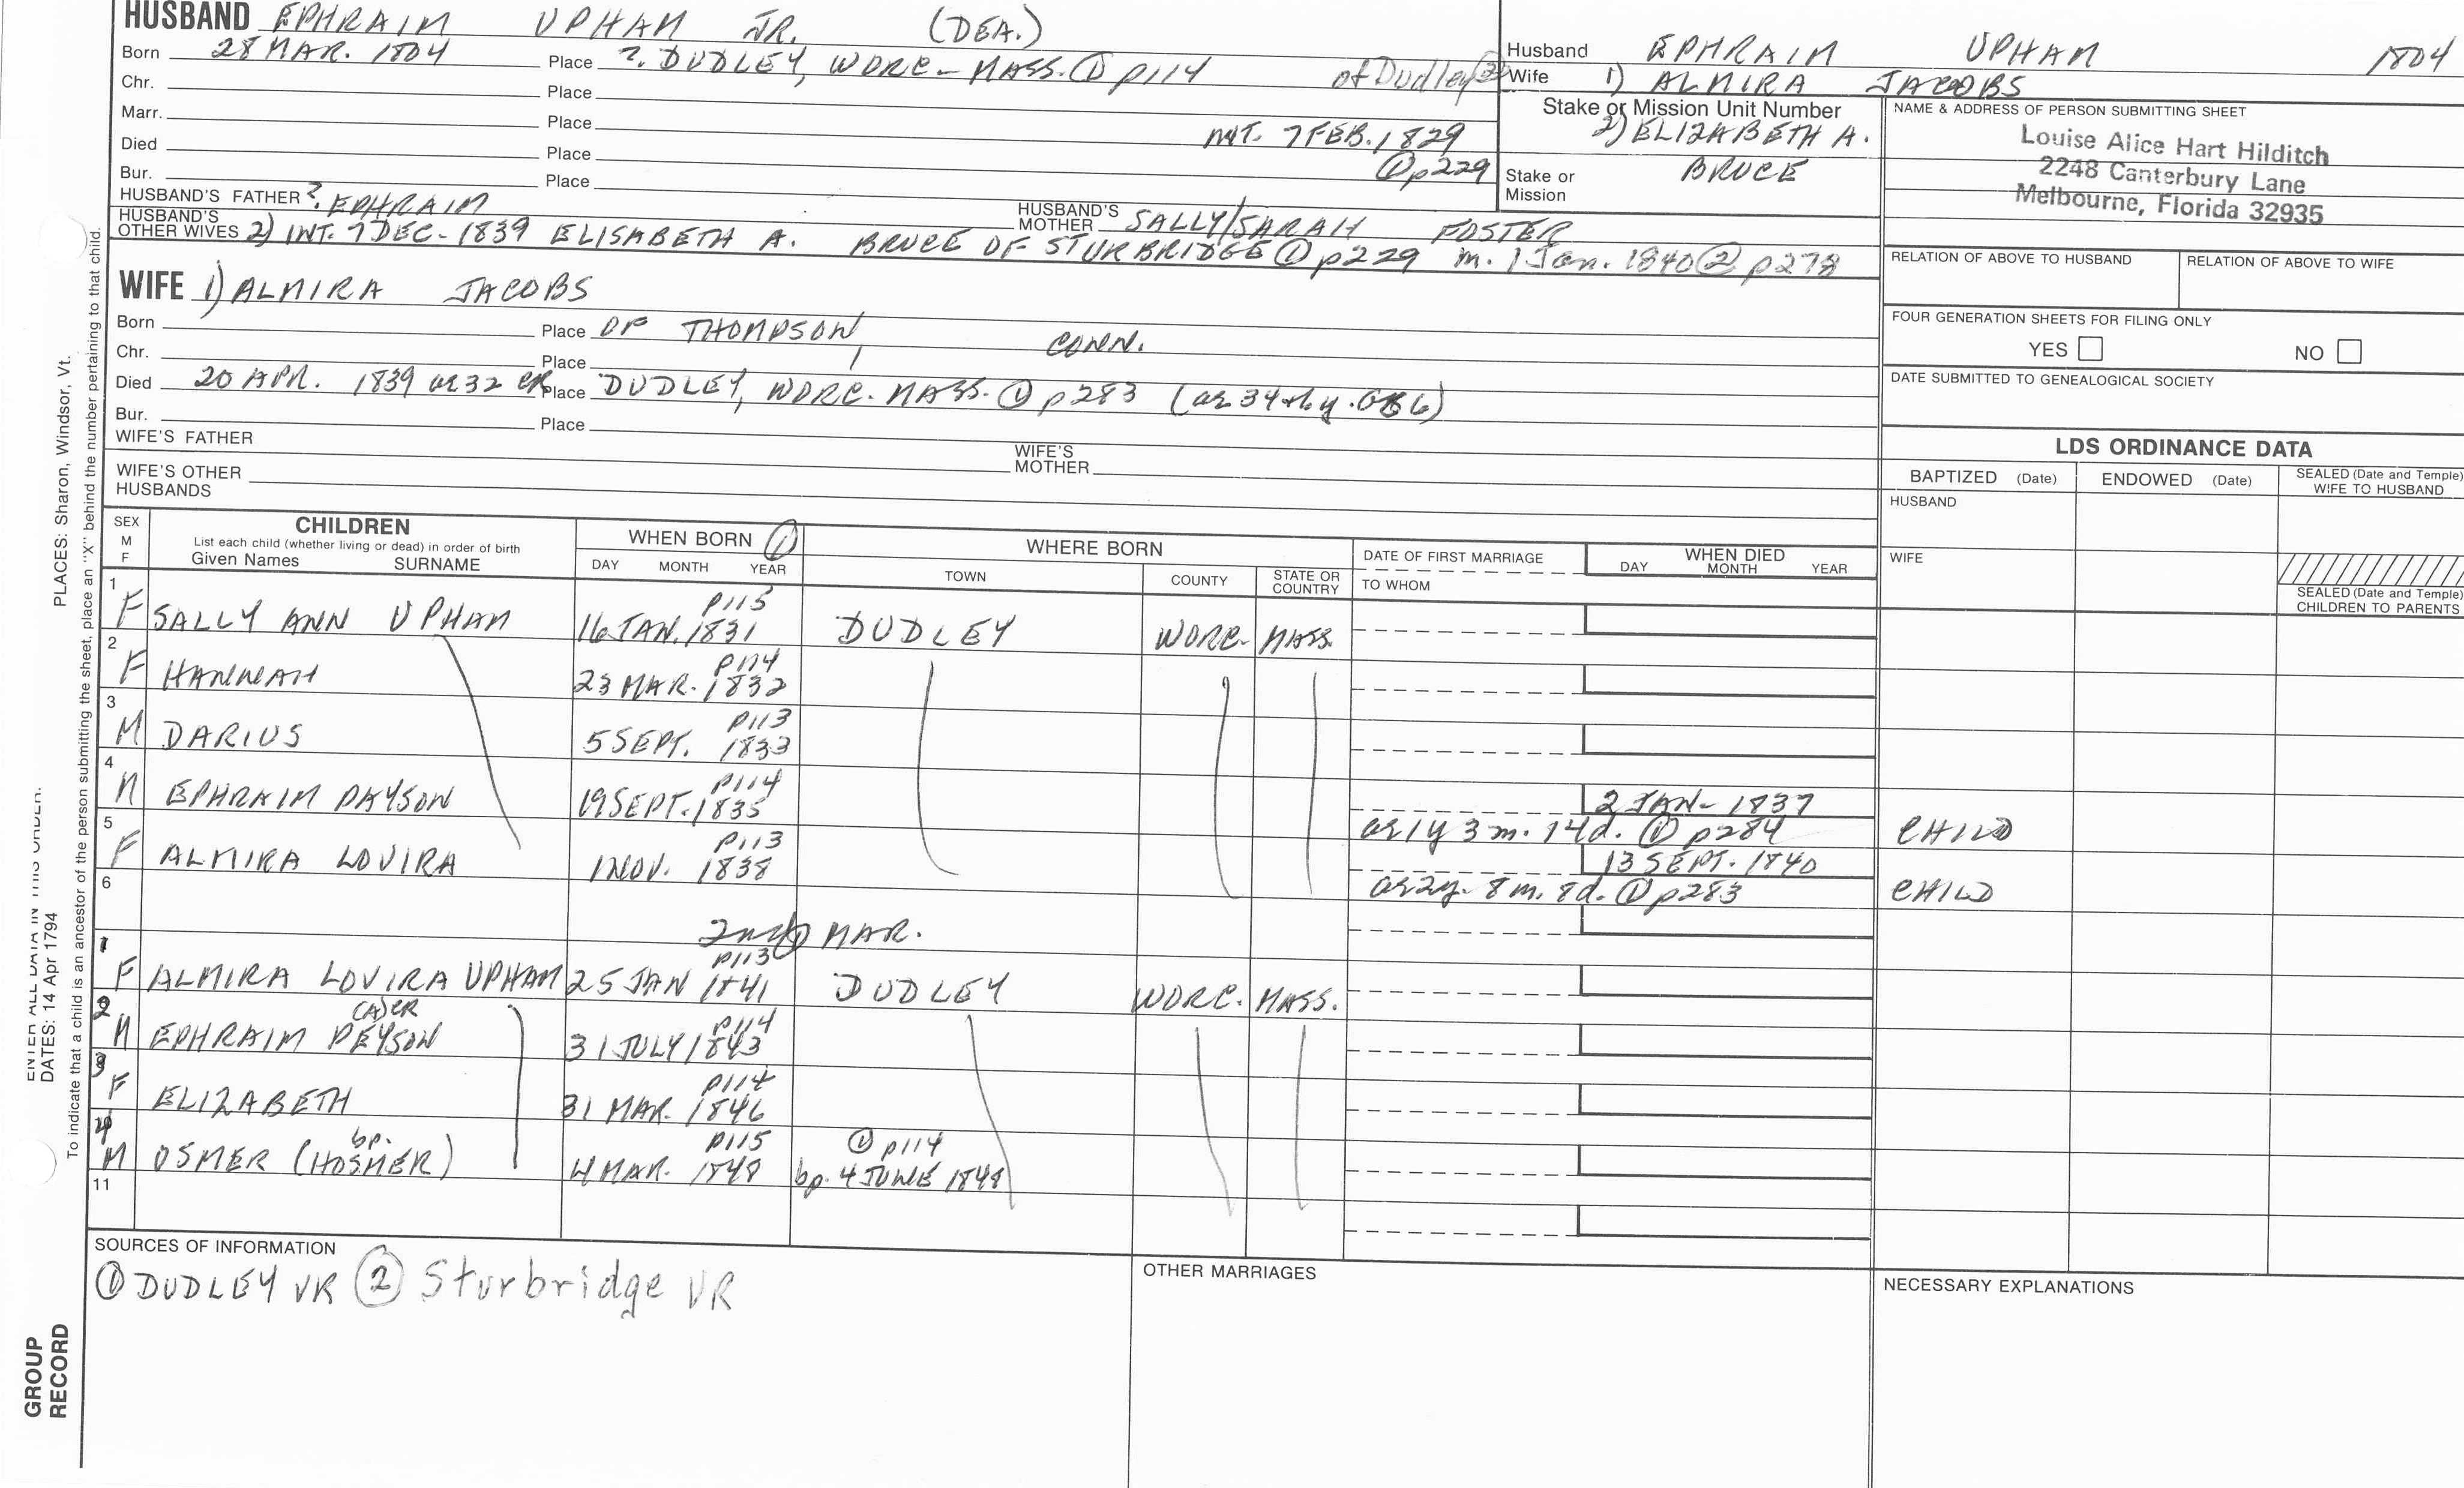 HUSBAND EPHRAIM UPHAM JR. (DEA.)
Born 28 MAR. 1804 Place ?. DUDLEY, WORC- MASS. ① p114 of Dudley ②
Chr. Place
Marr. Place
INT. 7 FEB. 1829
Died Place
① p229
Bur. Place
HUSBAND'S FATHER ?. EPHRAIM HUSBAND'S MOTHER SALLY/SARAH FOSTER
HUSBAND'S OTHER WIVES 2) INT. 7 DEC- 1839 ELISABETH A. BRUCE OF STURBRIDGE ① p229 m. 1 Jan. 1840 ② p278
Husband EPHRAIM UPHAM 1804
Wife 1) ALMIRA JACOBS
Stake or Mission Unit Number
2) ELIZABETH A. BRUCE
Stake or Mission
NAME & ADDRESS OF PERSON SUBMITTING SHEET
Louise Alice Hart Hilditch
2248 Canterbury Lane
Melbourne, Florida 32935
RELATION OF ABOVE TO HUSBAND RELATION OF ABOVE TO WIFE
FOUR GENERATION SHEETS FOR FILING ONLY
YES NO
DATE SUBMITTED TO GENEALOGICAL SOCIETY
WIFE 1) ALMIRA JACOBS
Born Place OF THOMPSON, CONN.
Chr. Place
Died 20 APR. 1839 ae 32 CR Place DUDLEY, WORC. MASS. ① p283 (ae 34
Bur. Place
WIFE'S FATHER WIFE'S MOTHER
WIFE'S OTHER HUSBANDS
LDS ORDINANCE DATA
BAPTIZED (Date) ENDOWED (Date) SEALED (Date and Temple) WIFE TO HUSBAND
HUSBAND
WIFE
SEALED (Date and Temple) CHILDREN TO PARENTS
SEX M F CHILDREN List each child (whether living or dead) in order of birth Given Names SURNAME
WHEN BORN ① DAY MONTH YEAR
WHERE BORN TOWN COUNTY STATE OR COUNTRY
DATE OF FIRST MARRIAGE TO WHOM
WHEN DIED DAY MONTH YEAR
1 F SALLY ANN UPHAM p115 16 JAN. 1831 DUDLEY WORC- MASS.
2 F HANNAH p114 23 MAR. 1832
3 M DARIUS p113 5 SEPT. 1833
4 M EPHRAIM PAYSON p114 19 SEPT. 1835 2 JAN- 1837
ae 1y 3 m. 14d. ① p284 CHILD
5 F ALMIRA LOVIRA p113 1 NOV. 1838 13 SEPT. 1840
ae 2y- 8 m. 8d. ① p283 CHILD
6
2nd MAR.
1 F ALMIRA LOVIRA UPHAM p113 25 JAN 1841 DUDLEY WORC. MASS.
2 M EPHRAIM PEYSON (A) CR p114 31 JULY 1843
3 F ELIZABETH p114 31 MAR. 1846
4 M OSMER (bp. HOSMER) p115 4 MAR. 1848 ① p114 bp. 4 JUNE 1848
11
SOURCES OF INFORMATION
① DUDLEY VR ② Sturbridge VR
OTHER MARRIAGES
NECESSARY EXPLANATIONS
PLACES: Sharon, Windsor, Vt.
ENTER ALL DATA IN THIS ORDER:
DATES: 14 Apr 1794
To indicate that a child is an ancestor of the person submitting the sheet, place an "X" behind the number pertaining to that child.
GROUP
RECORD